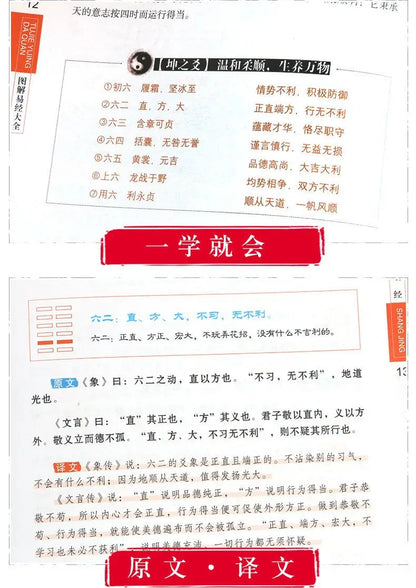 12
天的意志按四时而运行得当。
TUJIE YIJING
DA QUAN
图解易经大全
【坤之爻】 温和柔顺，生养万物
①初六 履霜，坚冰至 情势不利，积极防御
②六二 直，方，大 正直端方，行无不利
③六三 含章可贞 蕴藏才华，恪尽职守
④六四 括囊，无咎无誉 谨言慎行，无益无损
⑤六五 黄裳，元吉 品德高尚，大吉大利
⑥上六 龙战于野 均势相争，双方不利
⑦用六 利永贞 顺从天道，一帆风顺
一学就会
六二：直，方，大，不习，无不利。
六二：正直、方正、宏大，不玩弄花招，没有什么不吉利的。
经
SHANG JING
13
原文《象》曰：六二之动，直以方也。“不习，无不利”，地道
光也。
《文言》曰：“直”其正也，“方”其义也。君子敬以直内，义以方
外。敬义立而德不孤。“直、方、大，不习无不利”，则不疑其所行也。
译文《象传》说：六二的爻象是正直且端正的。不沾染别的习气，
不会有什么不利；因为地顺从天道，值得发扬光大。
《文言传》说：“直”说明品德纯正，“方”说明行为得当。君子恭
敬不苟，所以内心才会正直，行为得当便可促使外形方正。做到恭敬不
苟、行为得当，就能使美德遍布而不会被孤立。“正直、端方、宏大，不
学习也未必不获利”，说明美德充沛，一切行为都无须怀疑。
原文·译文